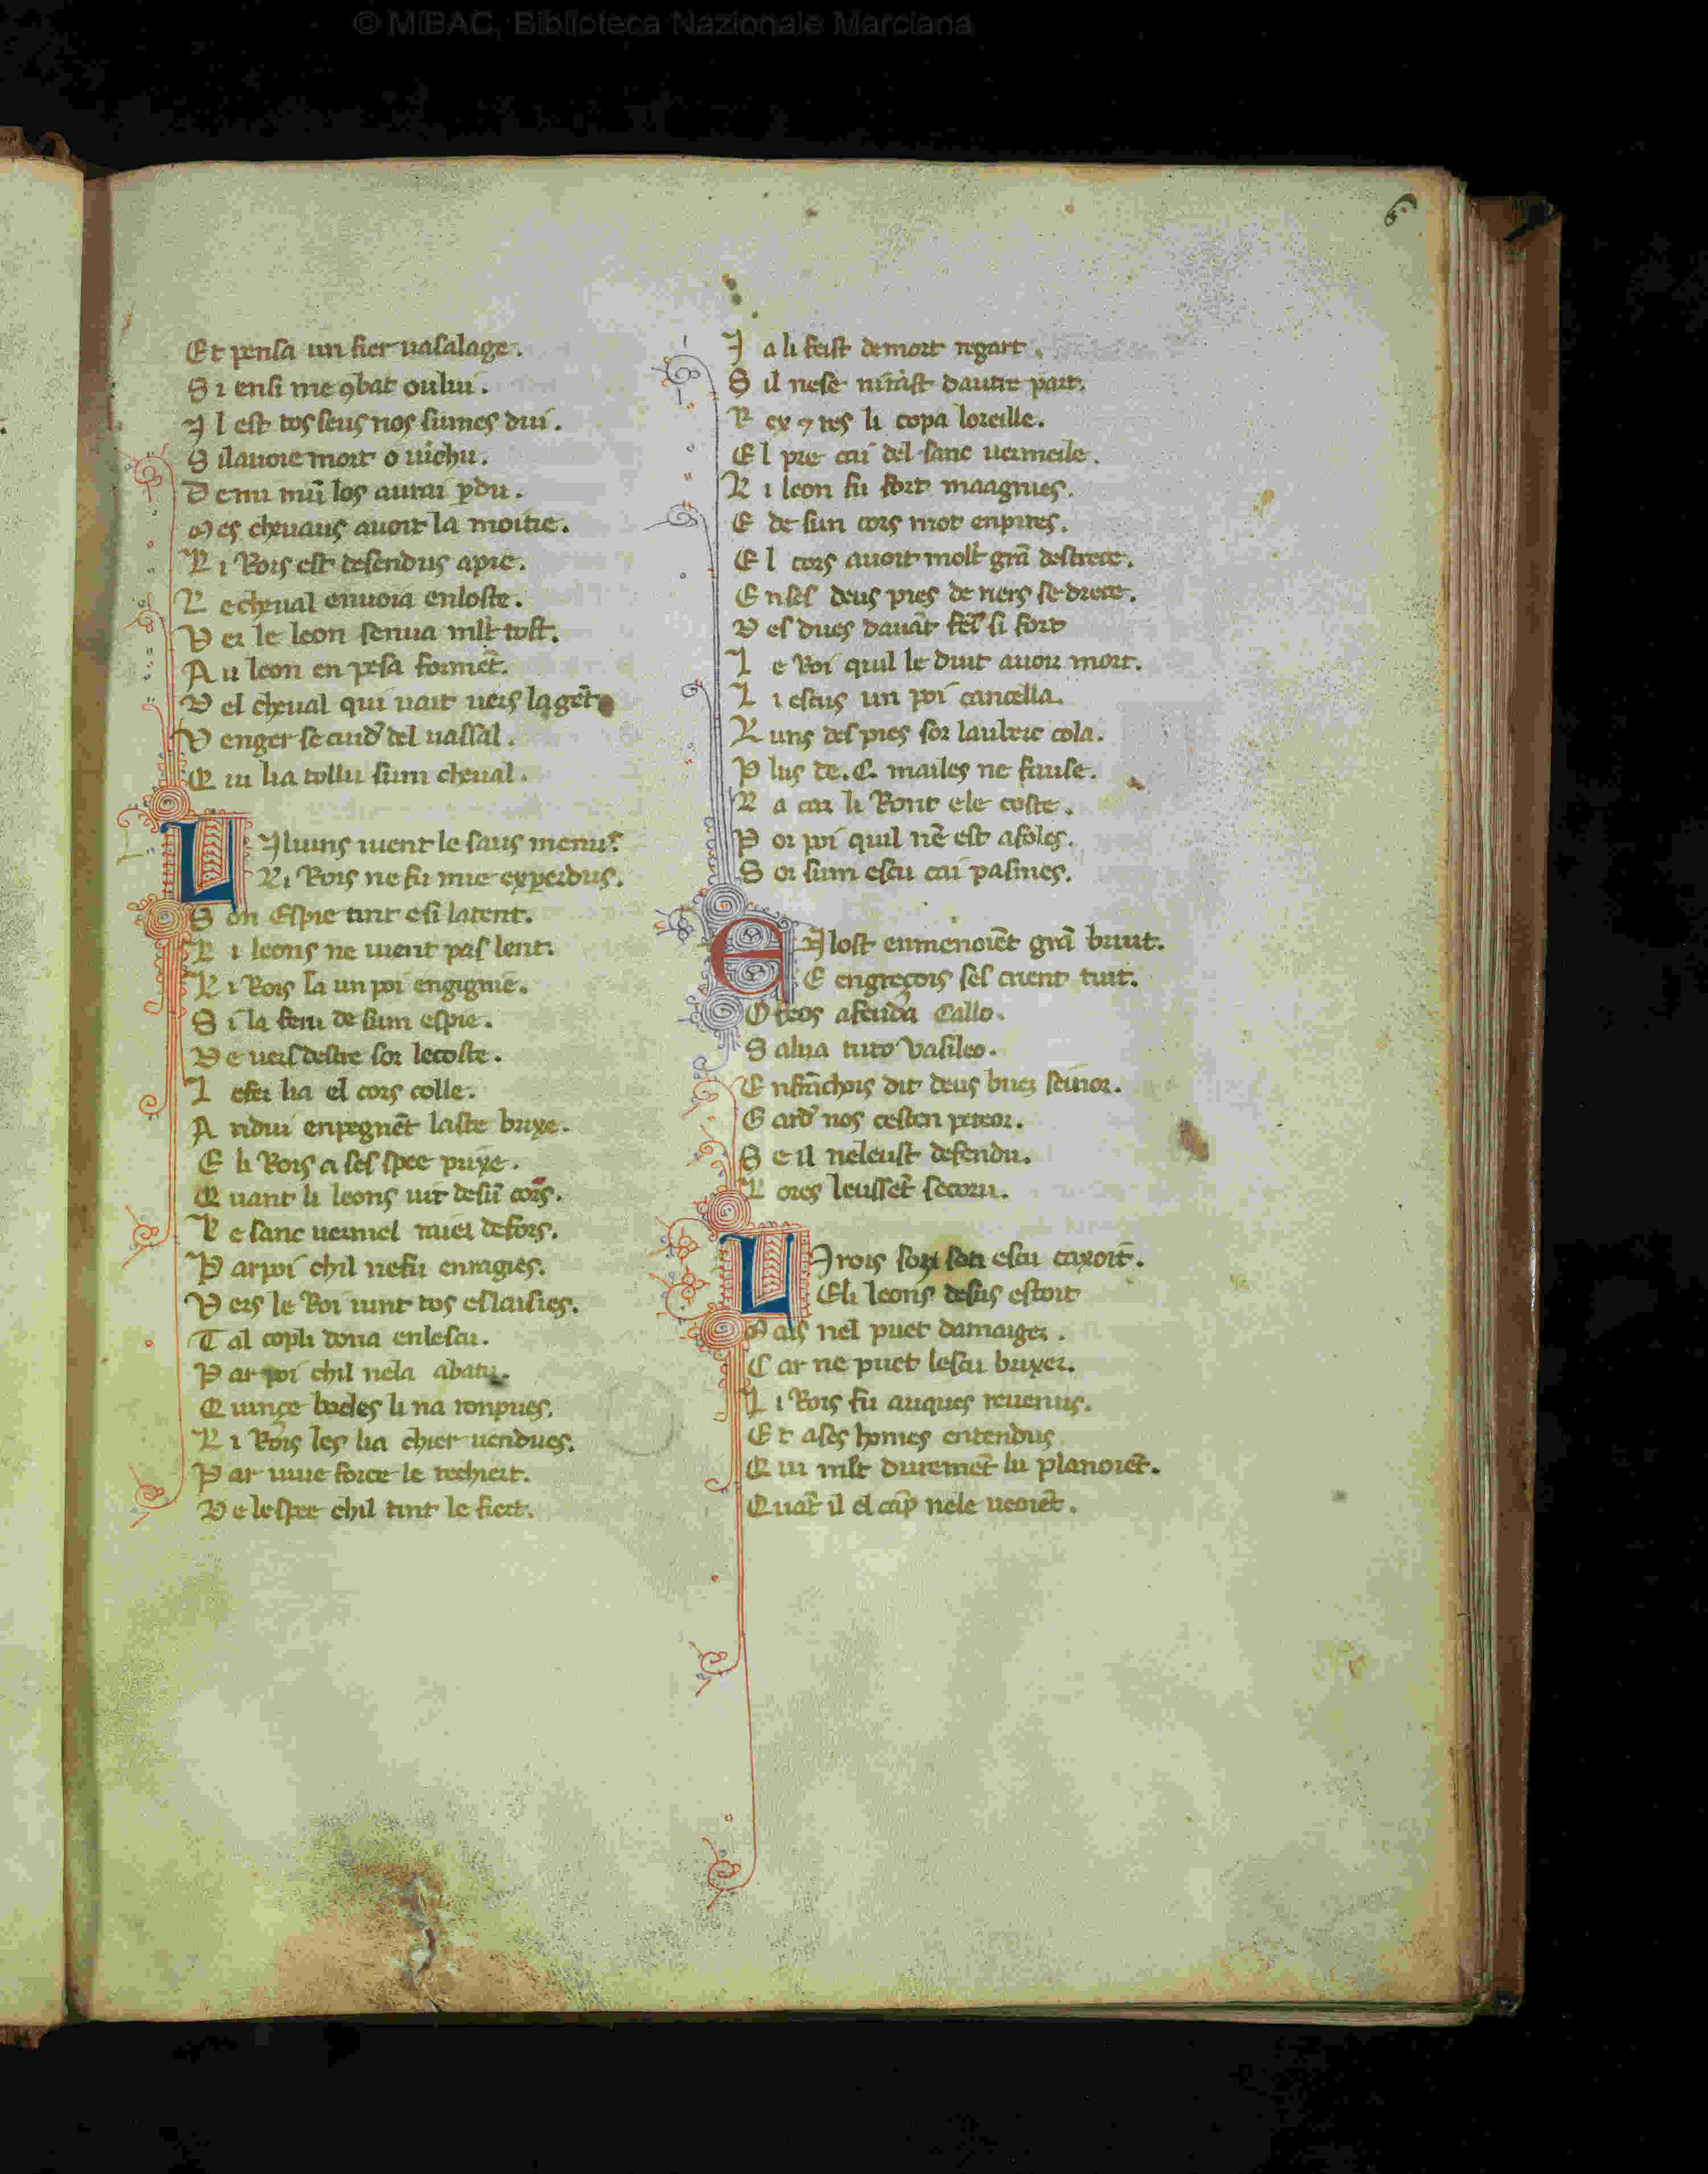 © MiBAC, Biblioteca Nazionale Marciana
6
Et pensa un fier uasalage.
Si ensi me ꝯbat oului.
Il est tos seus nos sumes dui.
S ilauoie mort o uichu.
De mi mū los aurai ꝑdu.
Mes cheuaus auoit la moitie.
Li Rois est desendus a pie.
Le cheual enuoia en loste.
Ver le leon senua mlt tost.
Au leon en pesa formēt.
Del cheual qui uait uers la gēt
Venger se cuid del uassal.
Qui lia tollu sum cheual.
LI luins uient le saus menus.
Li Rois ne fu mie experdus.
Son Espie tint esi latent.
Li leons ne uient pas lent.
Li Rois la un poi engignie.
Si la feru de sum espie.
De uers destre sor lecoste.
Le fer lia el cors colle.
Andui enpegnēt laste brixe.
E li Rois a ses spee prixe.
Quant li leons uit de sū cors.
Le sanc uermel raier defors.
Par poi chil ne fu enragies.
Vers le Roi uint tos eslaisies.
Tal cop li dona en lescu.
Par poi chil nela abatu.
Quinçe bocles li na ronpues.
Li Rois les lia chier uendues.
Par uiue force le rechiert.
De lespee chil tint le fiert.
Ia li feist de mort regart.
S il nese uirast dautre part.
Rex ⁊ res li copa loreille.
El pre cai del sanc uermeile.
Li leon fu fort maagnies.
E de sun cors mot enpires.
El cors auoit molt grā destrece.
En ses deus pies de riers se drece.
Des dues dauāt feri si fort
Le Roi quil le duit auoir mort.
Li escus un poi cancella.
Luns des pies sor lauberc cola.
Plus de .C. mailes ne fause.
La car li Ront ele coste.
Por poi quil nē est afoles.
Sor sum escu cai pasmes.
EI lost enmenoiēt grā bruit.
E en greçois sel crient tuit.
O teos afenda Callo.
Salua tuto Vasileo.
En frāchois dit deus buer seinor.
Gard nos cest enpereor.
Se il neleust defendu.
Lores leussēt secoru.
LI rois sor son escu caxoit.
E li leons desus estoit
Mais nel puet damaiger.
Car ne puet lescu brixer.
Li Rois fu auques reuenus.
Et ases homes entendus
Qui mlt duremēt lu planoiēt.
Quāt il el cāp nele ueoiēt.